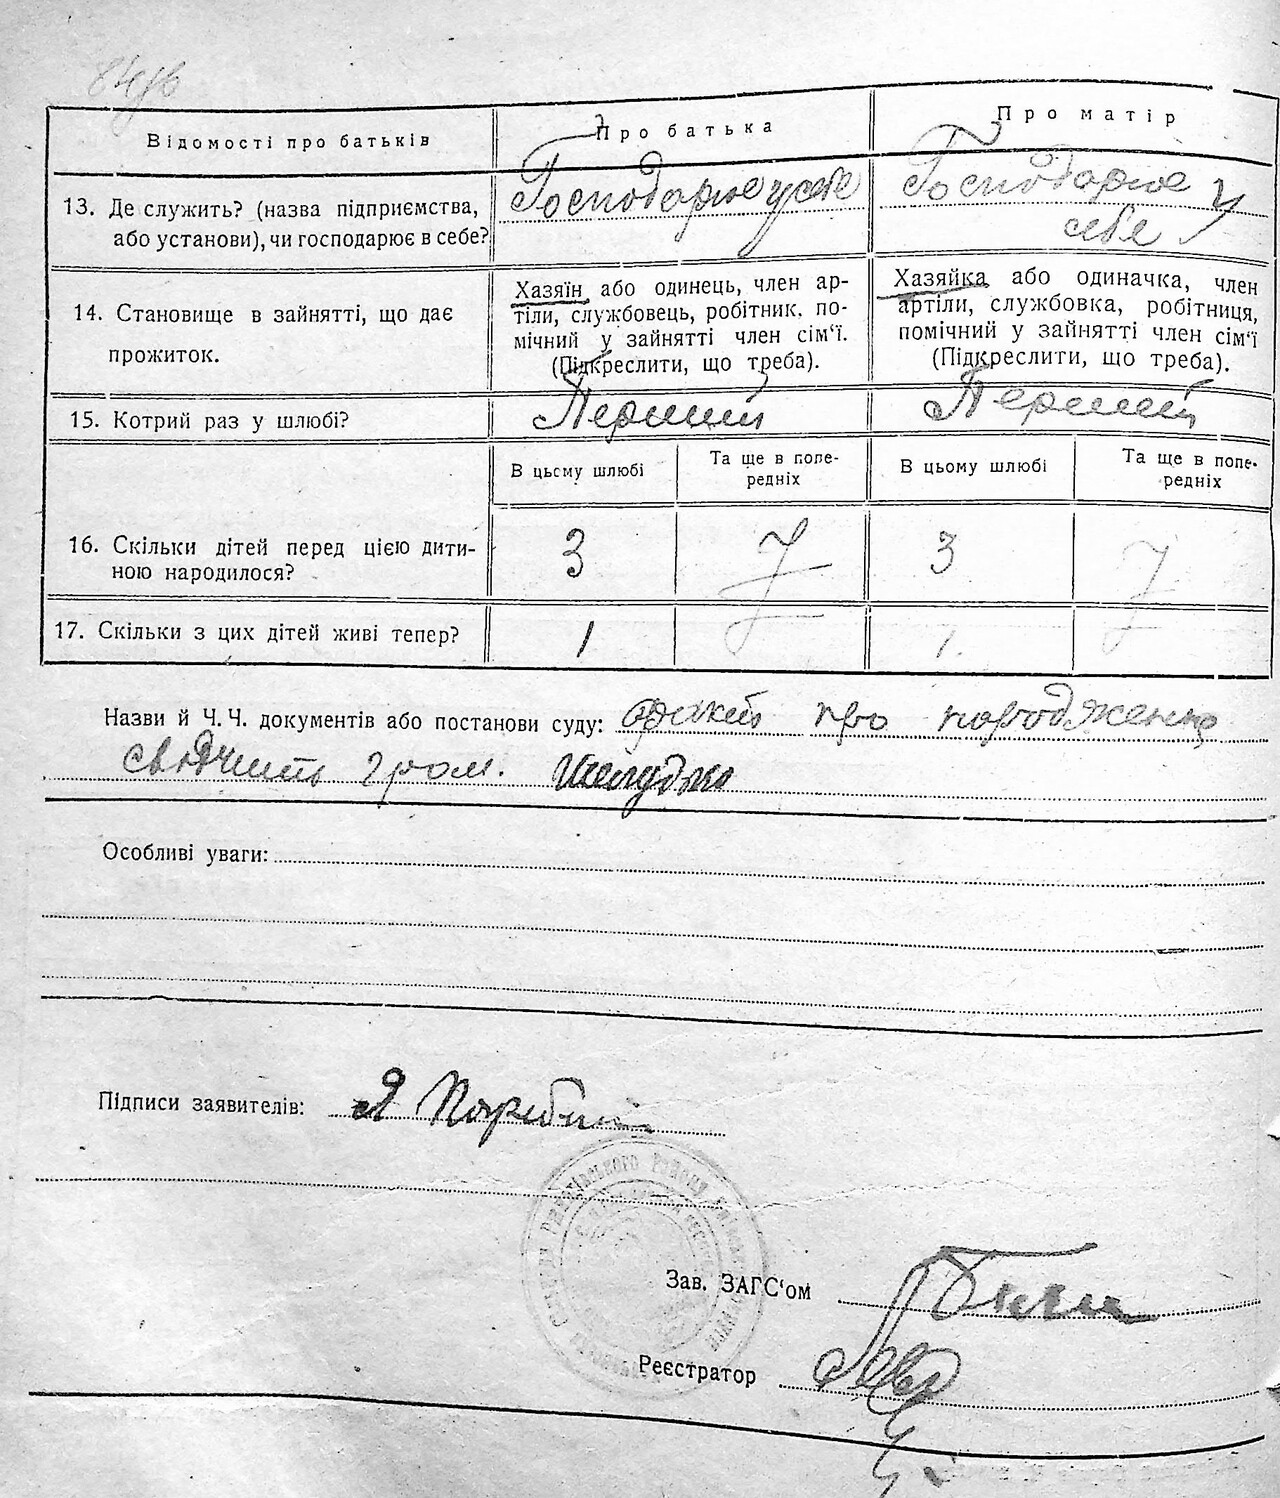 84зв
Відомості про батьків
Про батька
Про матір
13. Де служить? (назва підприємства,
або установи), чи господарює в себе?
Господарює у себе
Господарює у
себе
14. Становище в зайнятті, що дає
прожиток.
Хазяїн або одинець, член ар-
тіли, службовець, робітник, по-
мічний у зайнятті член сім'ї.
(Підкреслити, що треба).
Хазяйка або одиначка, член
артіли, службовка, робітниця,
помічний у зайнятті член сім'ї
(Підкреслити, що треба).
15. Котрий раз у шлюбі?
Перший
Перший
В цьому шлюбі
Та ще в попе-
редніх
В цьому шлюбі
Та ще в попе-
редніх
16. Скільки дітей перед цією дити-
ною народилося?
3
3
17. Скільки з цих дітей живі тепер?
1
1.
Назви й Ч. Ч. документів або постанови суду: факт про народження
свідчить гром.
Особливі уваги:
Підписи заявителів: Я
Зав. ЗАГС'ом
Реєстратор